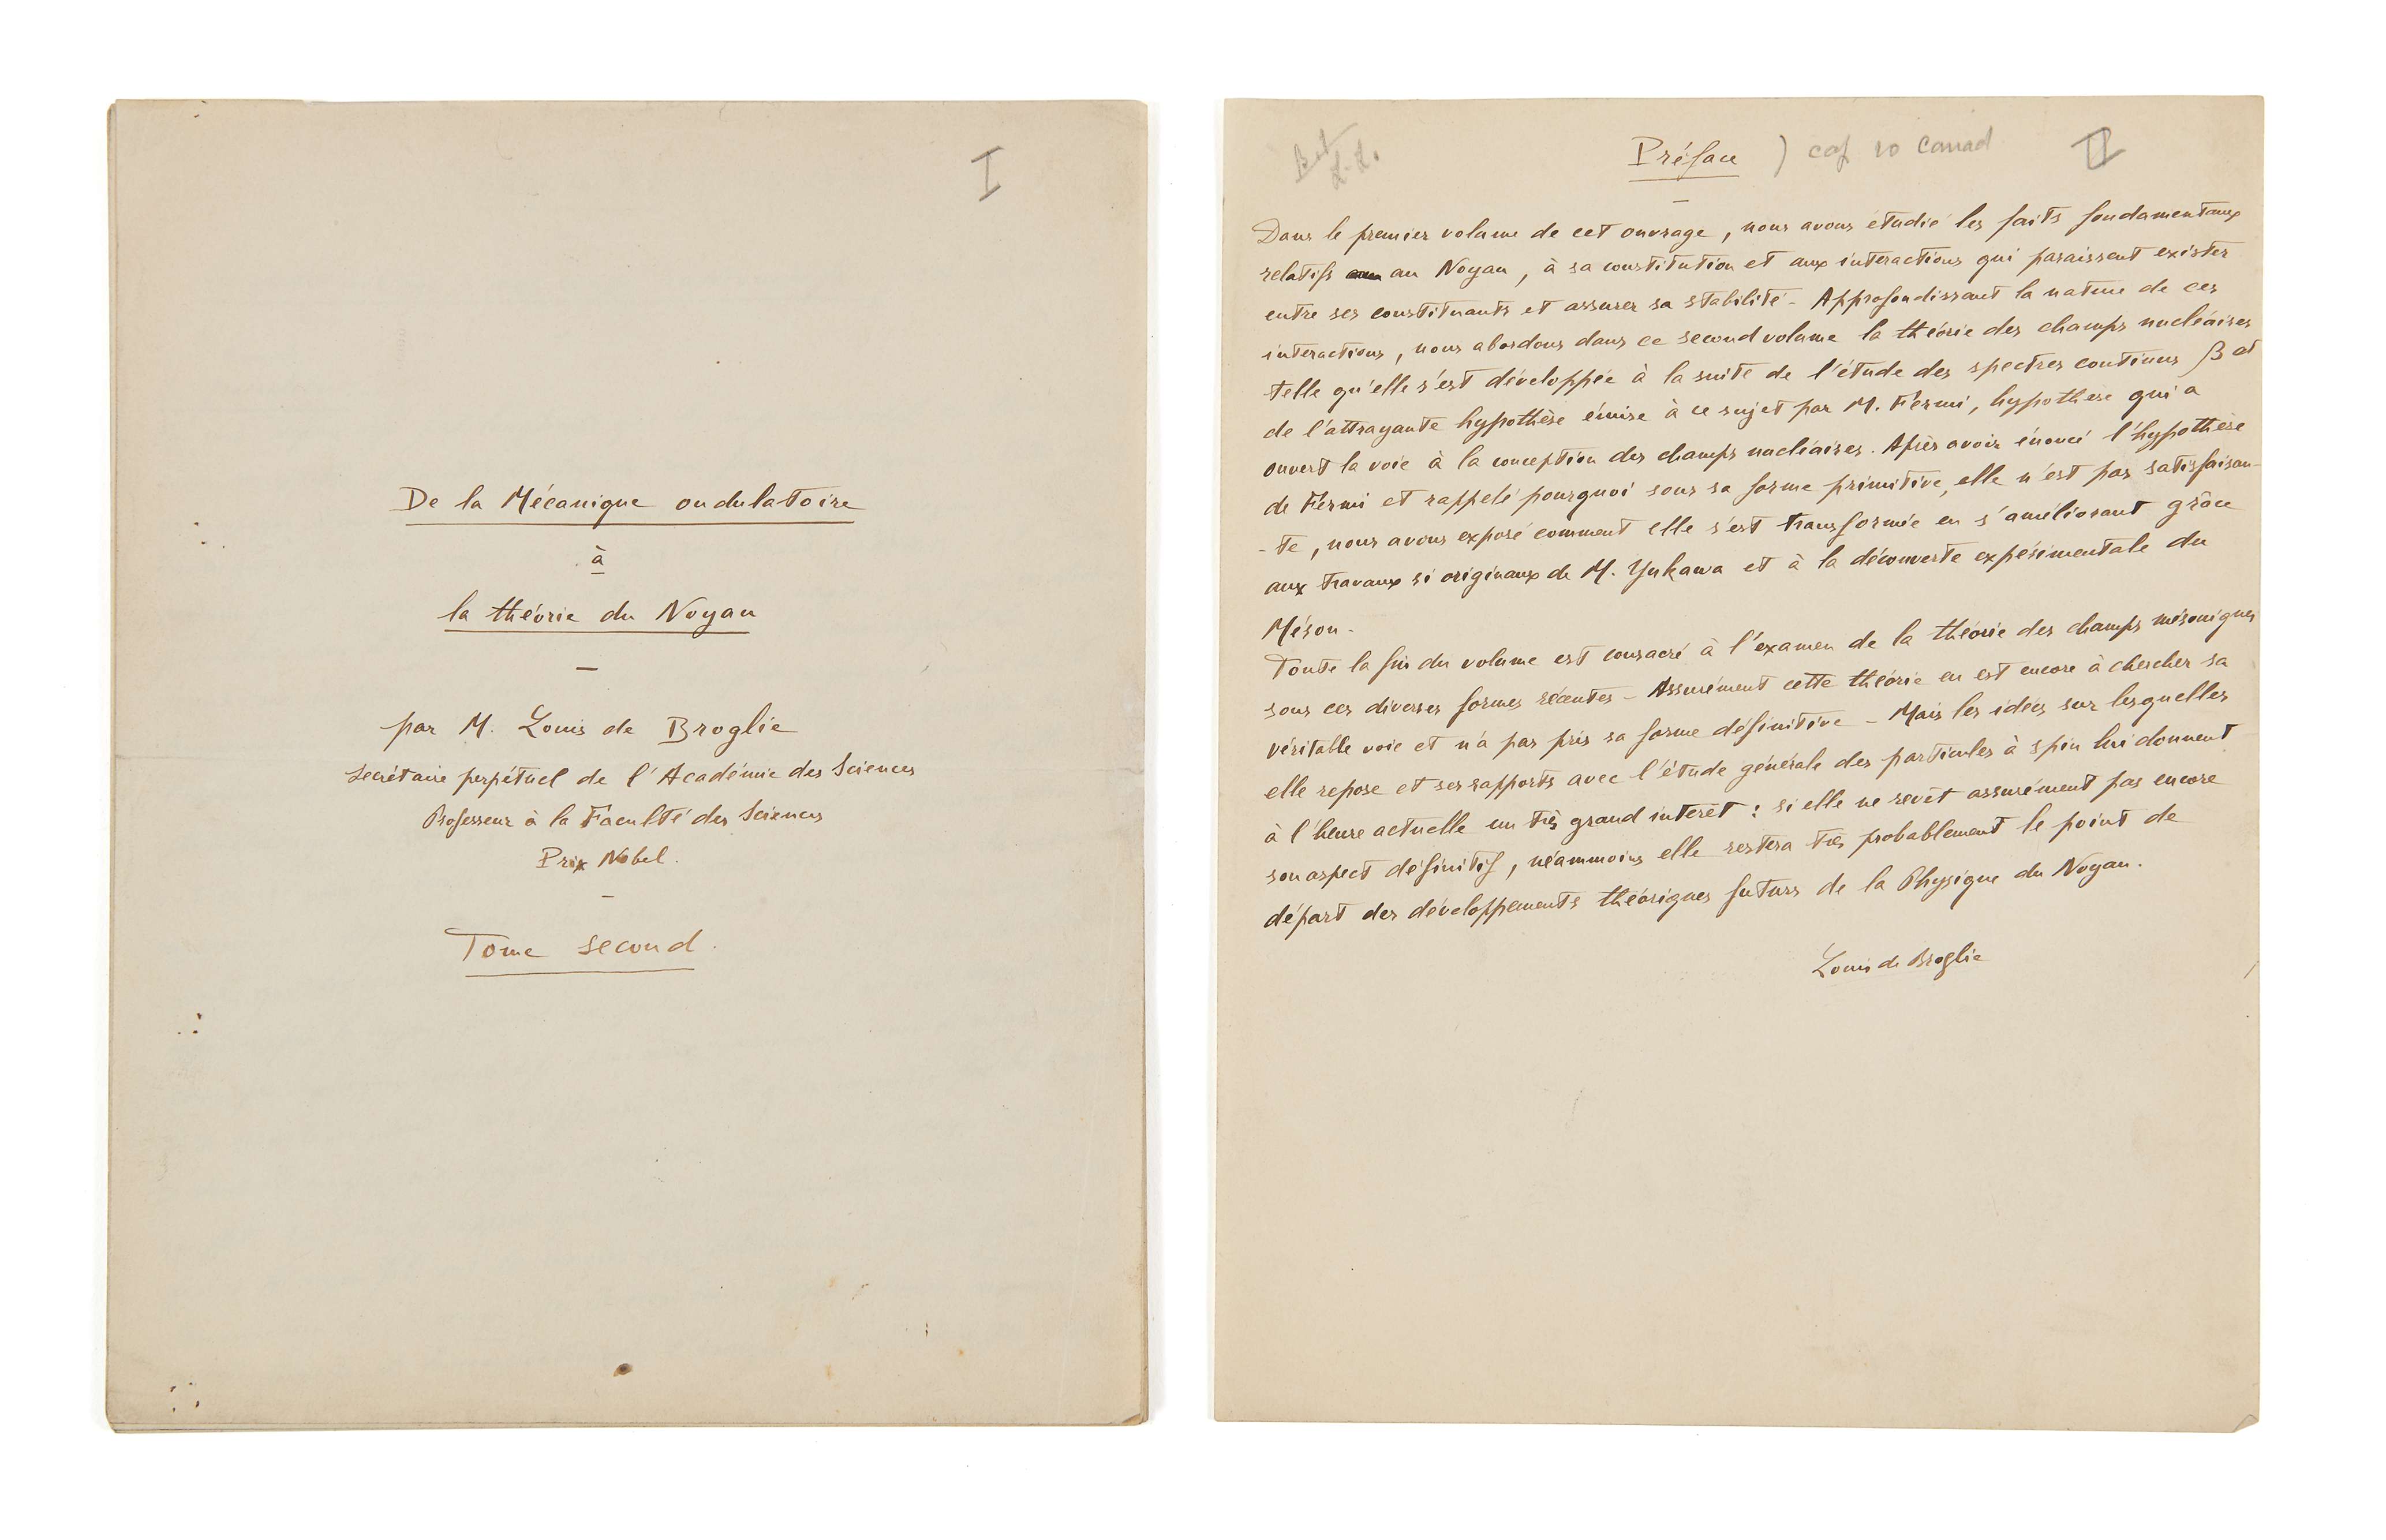 I
De la Mécanique ondulatoire
à
la théorie du Noyau
par M. Louis de Broglie
Secrétaire perpétuel de l'Académie des Sciences
Professeur à la Faculté des Sciences
Prix Nobel.
Tome second.
Préface ) 10 II
Dans le premier volume de cet ouvrage, nous avons étudié les faits fondamentaux
relatifs au Noyau, à sa constitution et aux interactions qui paraissent exister
entre ses constituants et assurer sa stabilité - Approfondissant la nature de ces
interactions, nous abordons dans ce second volume la théorie des champs nucléaires
telle qu'elle s'est développée à la suite de l'étude des spectres continus β et
de l'attrayante hypothèse émise à ce sujet par M. Fermi, hypothèse qui a
ouvert la voie à la conception des champs nucléaires. Après avoir énoncé l'hypothèse
de Fermi et rappelé pourquoi sous sa forme primitive, elle n'est pas satisfaisan-
-te, nous avons exposé comment elle s'est transformée en s'améliorant grâce
aux travaux si originaux de M. Yukawa et à la découverte expérimentale du
Méson -
Toute la fin du volume est consacré à l'examen de la théorie des champs mésoniques
sous ces diverses formes récentes - Assurément cette théorie en est encore à chercher sa
véritable voie et n'a pas pris sa forme définitive - Mais les idées sur lesquelles
elle repose et ses rapports avec l'étude générale des particules à spin lui donnent
à l'heure actuelle un très grand intérêt : si elle ne revêt assurément pas encore
son aspect définitif, néammoins elle restera très probablement le point de
départ des développements théoriques futurs de la Physique du Noyau.
Louis de Broglie